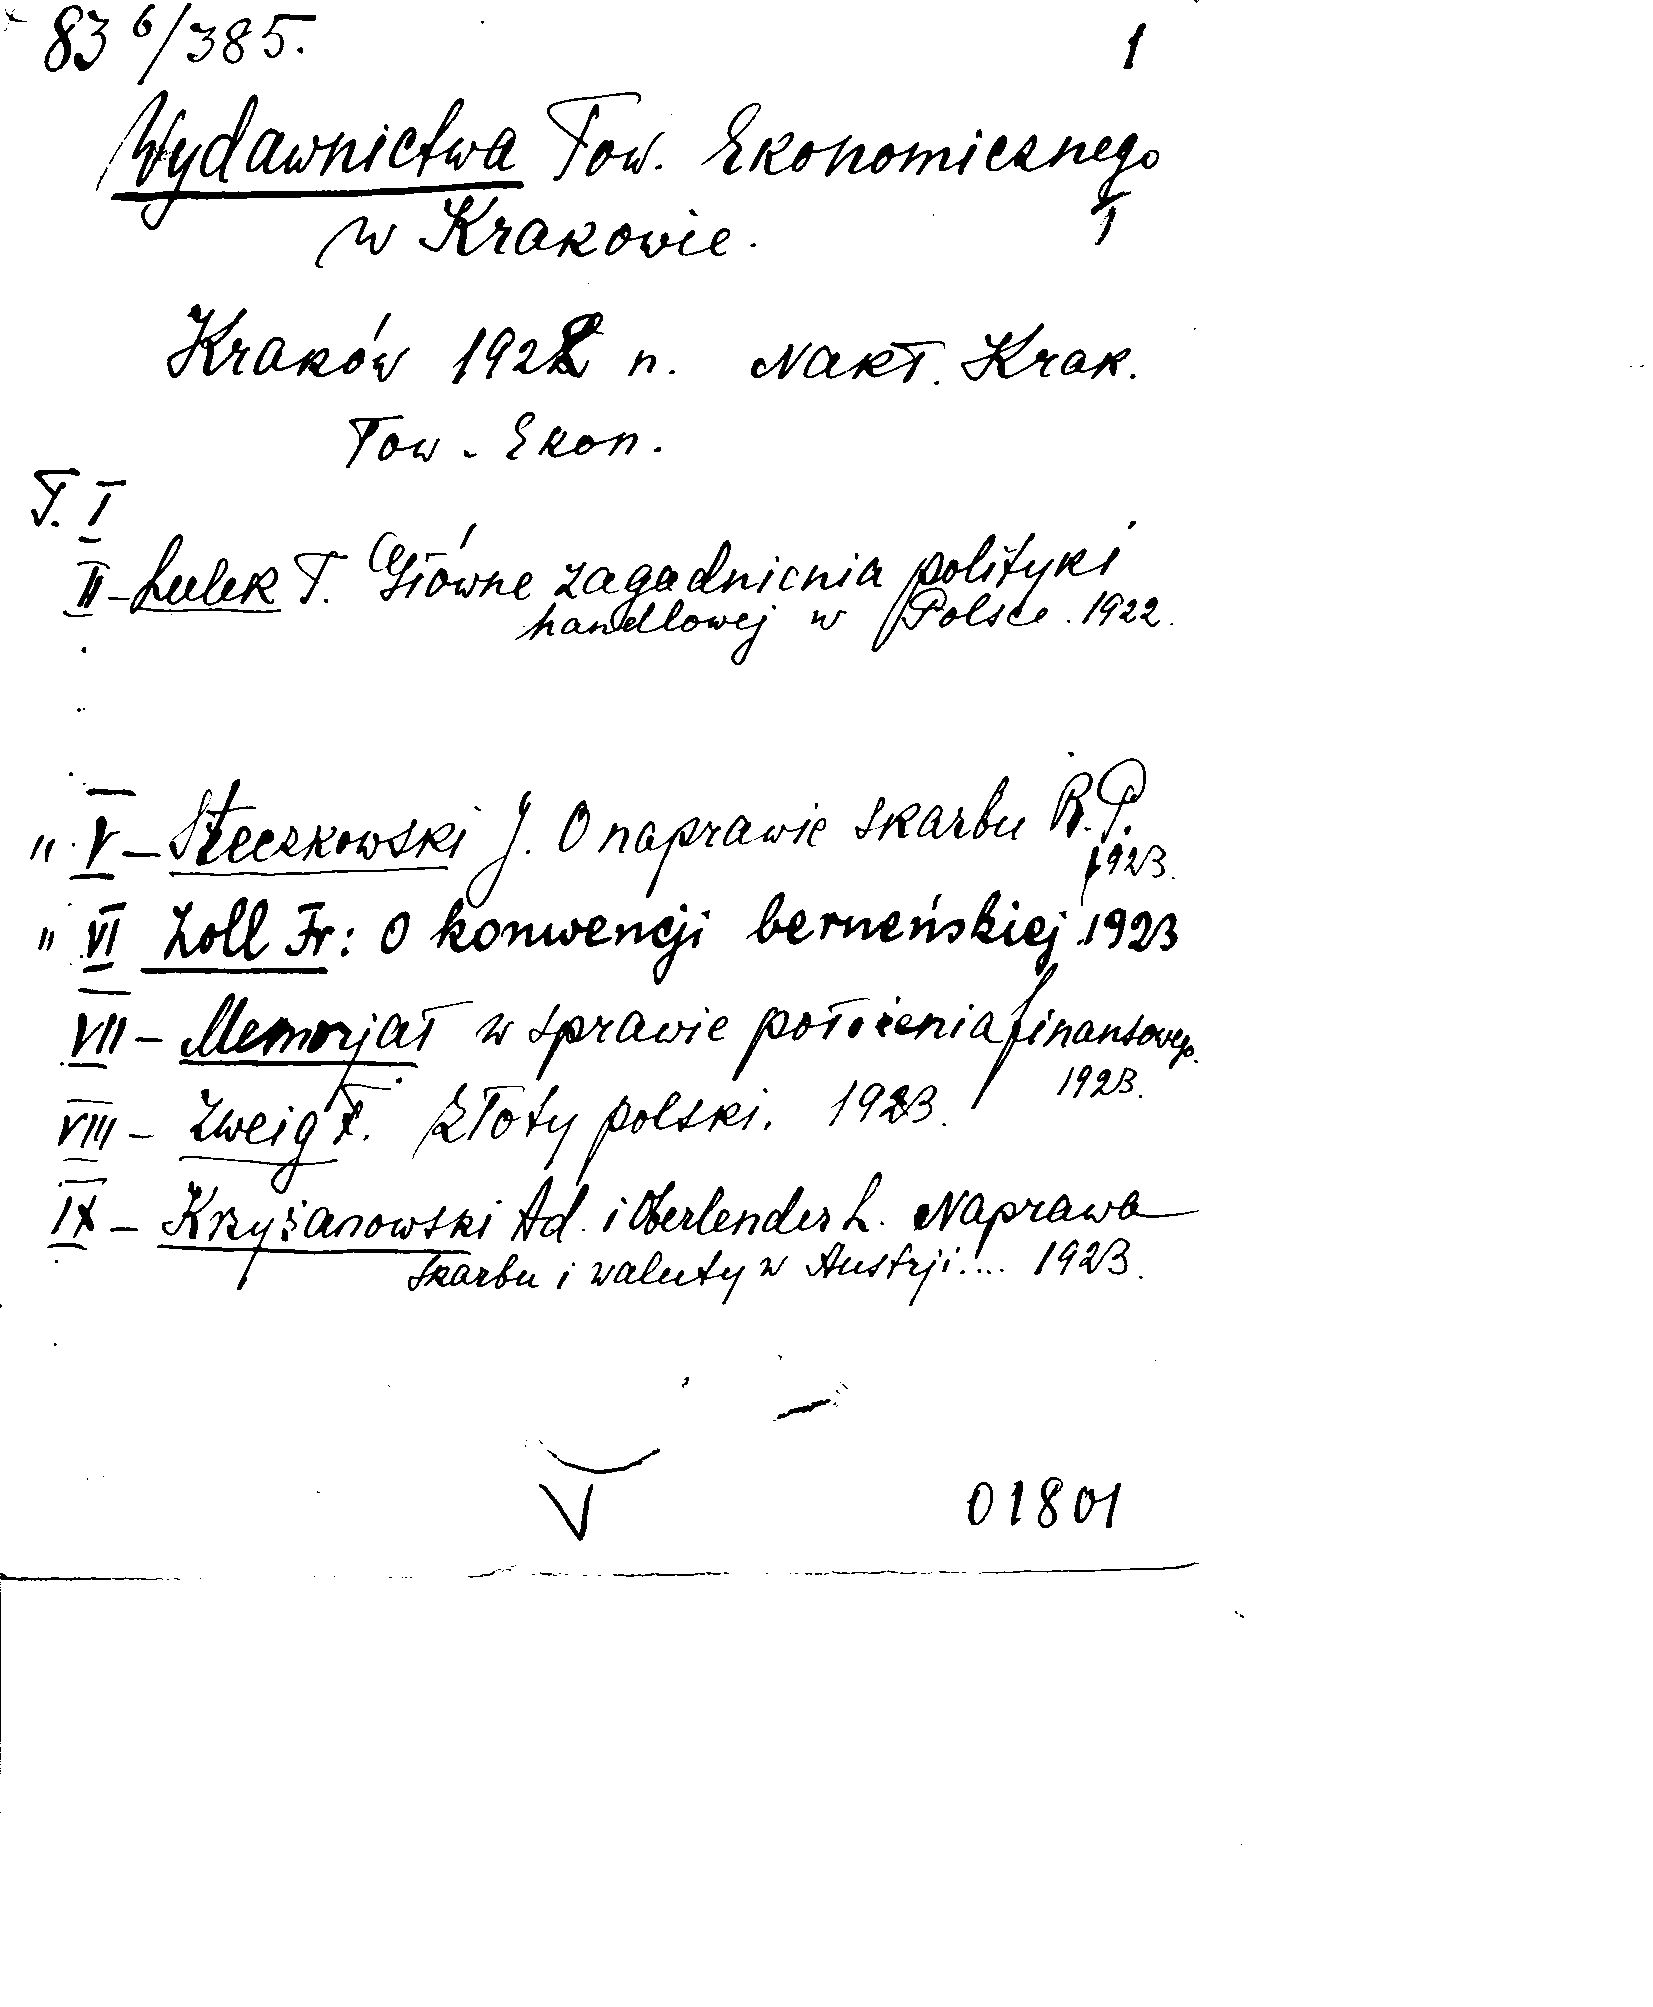 83 6/385. 1
Wydawnictwa Tow. Ekonomicznego
w Krakowie.
Kraków 1922 n. Nakł. Krak.
Tow. Ekon.
T. I
II - Lulek T. Główne zagadnienia polityki
handlowej w Polsce. 1922.
" V - Steczkowski J. O naprawie skarbu R.P.
1923.
" VI Zoll Fr: O konwencji berneńskiej 1923
VII - Memorjał w sprawie położenia finansowego.
1923.
VIII - Zweig F. Złoty polski. 1923.
IX - Krzyżanowski Ad. i Oberlender L. Naprawa
skarbu i waluty w Austrji.... 1923.
V
01801